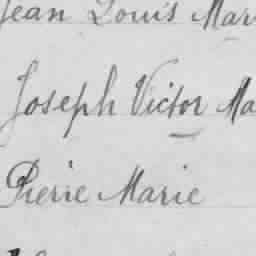 Jean Louis Mar
Joseph Victor Ma
Pierre Marie